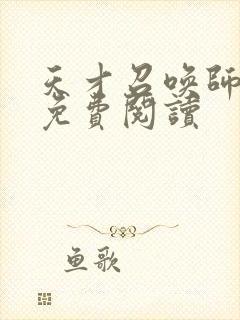 天才召唤師
免費閱讀
鱼歌